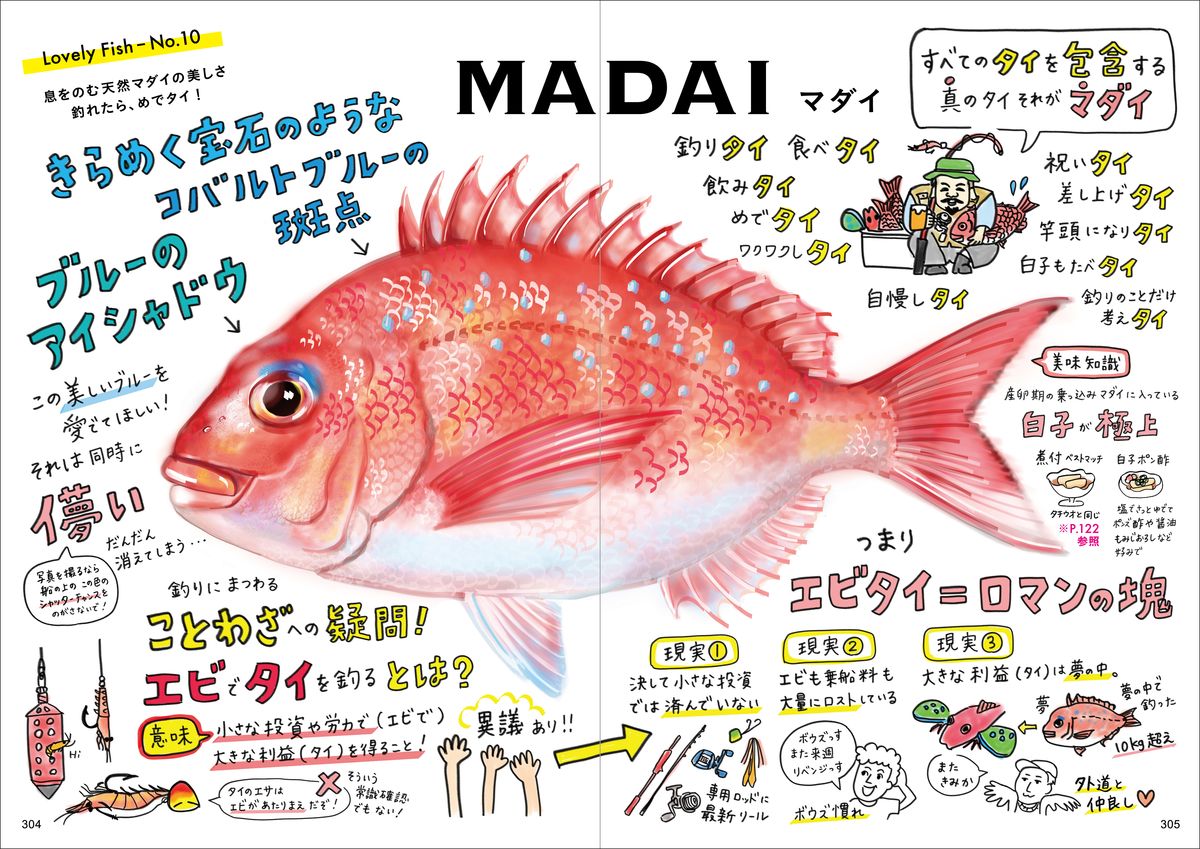 Lovely Fish – No.10
息をのむ天然マダイの美しさ
釣れたら、めでタイ！
MADAI マダイ
すべてのタイを包含する
真のタイ それが マダイ
きらめく宝石のような
コバルトブルーの
斑点
ブルーの
アイシャドウ
この美しいブルーを
愛でてほしい！
それは同時に
儚い
だんだん
消えてしまう…
写真を撮るなら
船の上の この色の
シャッターチャンスを
のがさないで！
釣りタイ 食べタイ
飲みタイ
めでタイ
ワクワクしタイ
自慢しタイ
祝いタイ
差し上げタイ
竿頭になりタイ
白子もたべタイ
釣りのことだけ
考えタイ
美味知識
産卵期の乗っ込みマダイに入っている
白子が極上
煮付ベストマッチ
タチウオと同じ
※P.122
参照
白子ポン酢
塩でさっとゆでて
ポンズ酢や醤油
もみじおろしなど
好みで
釣りにまつわる
ことわざへの疑問！
エビでタイを釣るとは？
意味
小さな投資や労力で（エビで）
大きな利益（タイ）を得ること！
Hi
タイのエサは
エビがあたりまえだぞ！
そういう
常識確認
でもない！
異議あり!!
つまり
エビタイ＝ロマンの塊
現実①
決して小さな投資
では済んでいない
専用ロッドに
最新リール
現実②
エビも乗船料も
大量にロストしている
ボウズっす
また来週
リベンジっす
ボウズ慣れ
現実③
大きな利益（タイ）は夢の中。
夢
夢の中で
釣った
10kg超え
また
きみか
外道と
仲良し
304
305